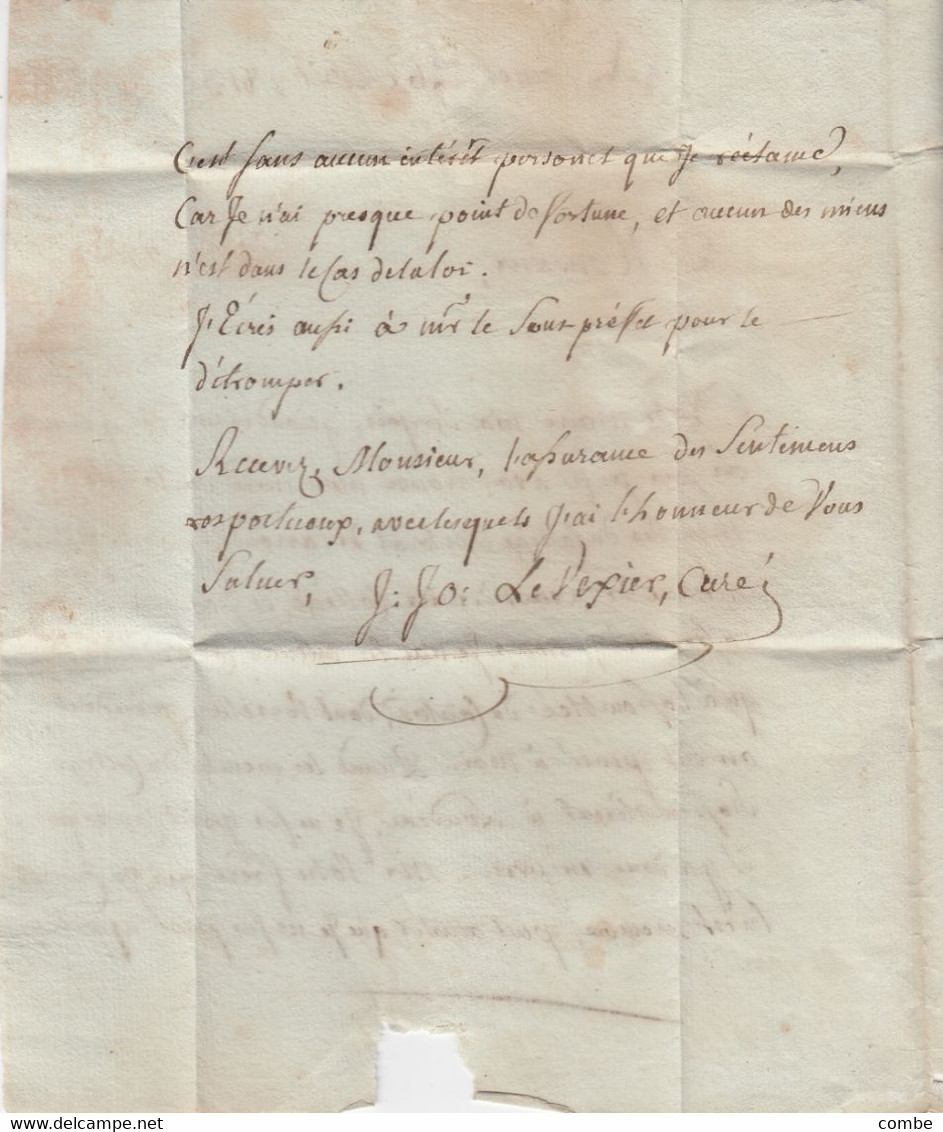 C'est sans aucun intérêt personel que Je réclame,
Car Je n'ai presque point de fortune, et aucun des miens
n'est dans le Cas de la loi.
J'Ecris aussi à mr le Sous préfet pour le
détromper.
Recevez, Monsieur, l'assurance des Sentimens
respectueux, avec lesquels J'ai l'honneur de Vous
Saluer, J: Jo: Le Vexier, Curé
combe